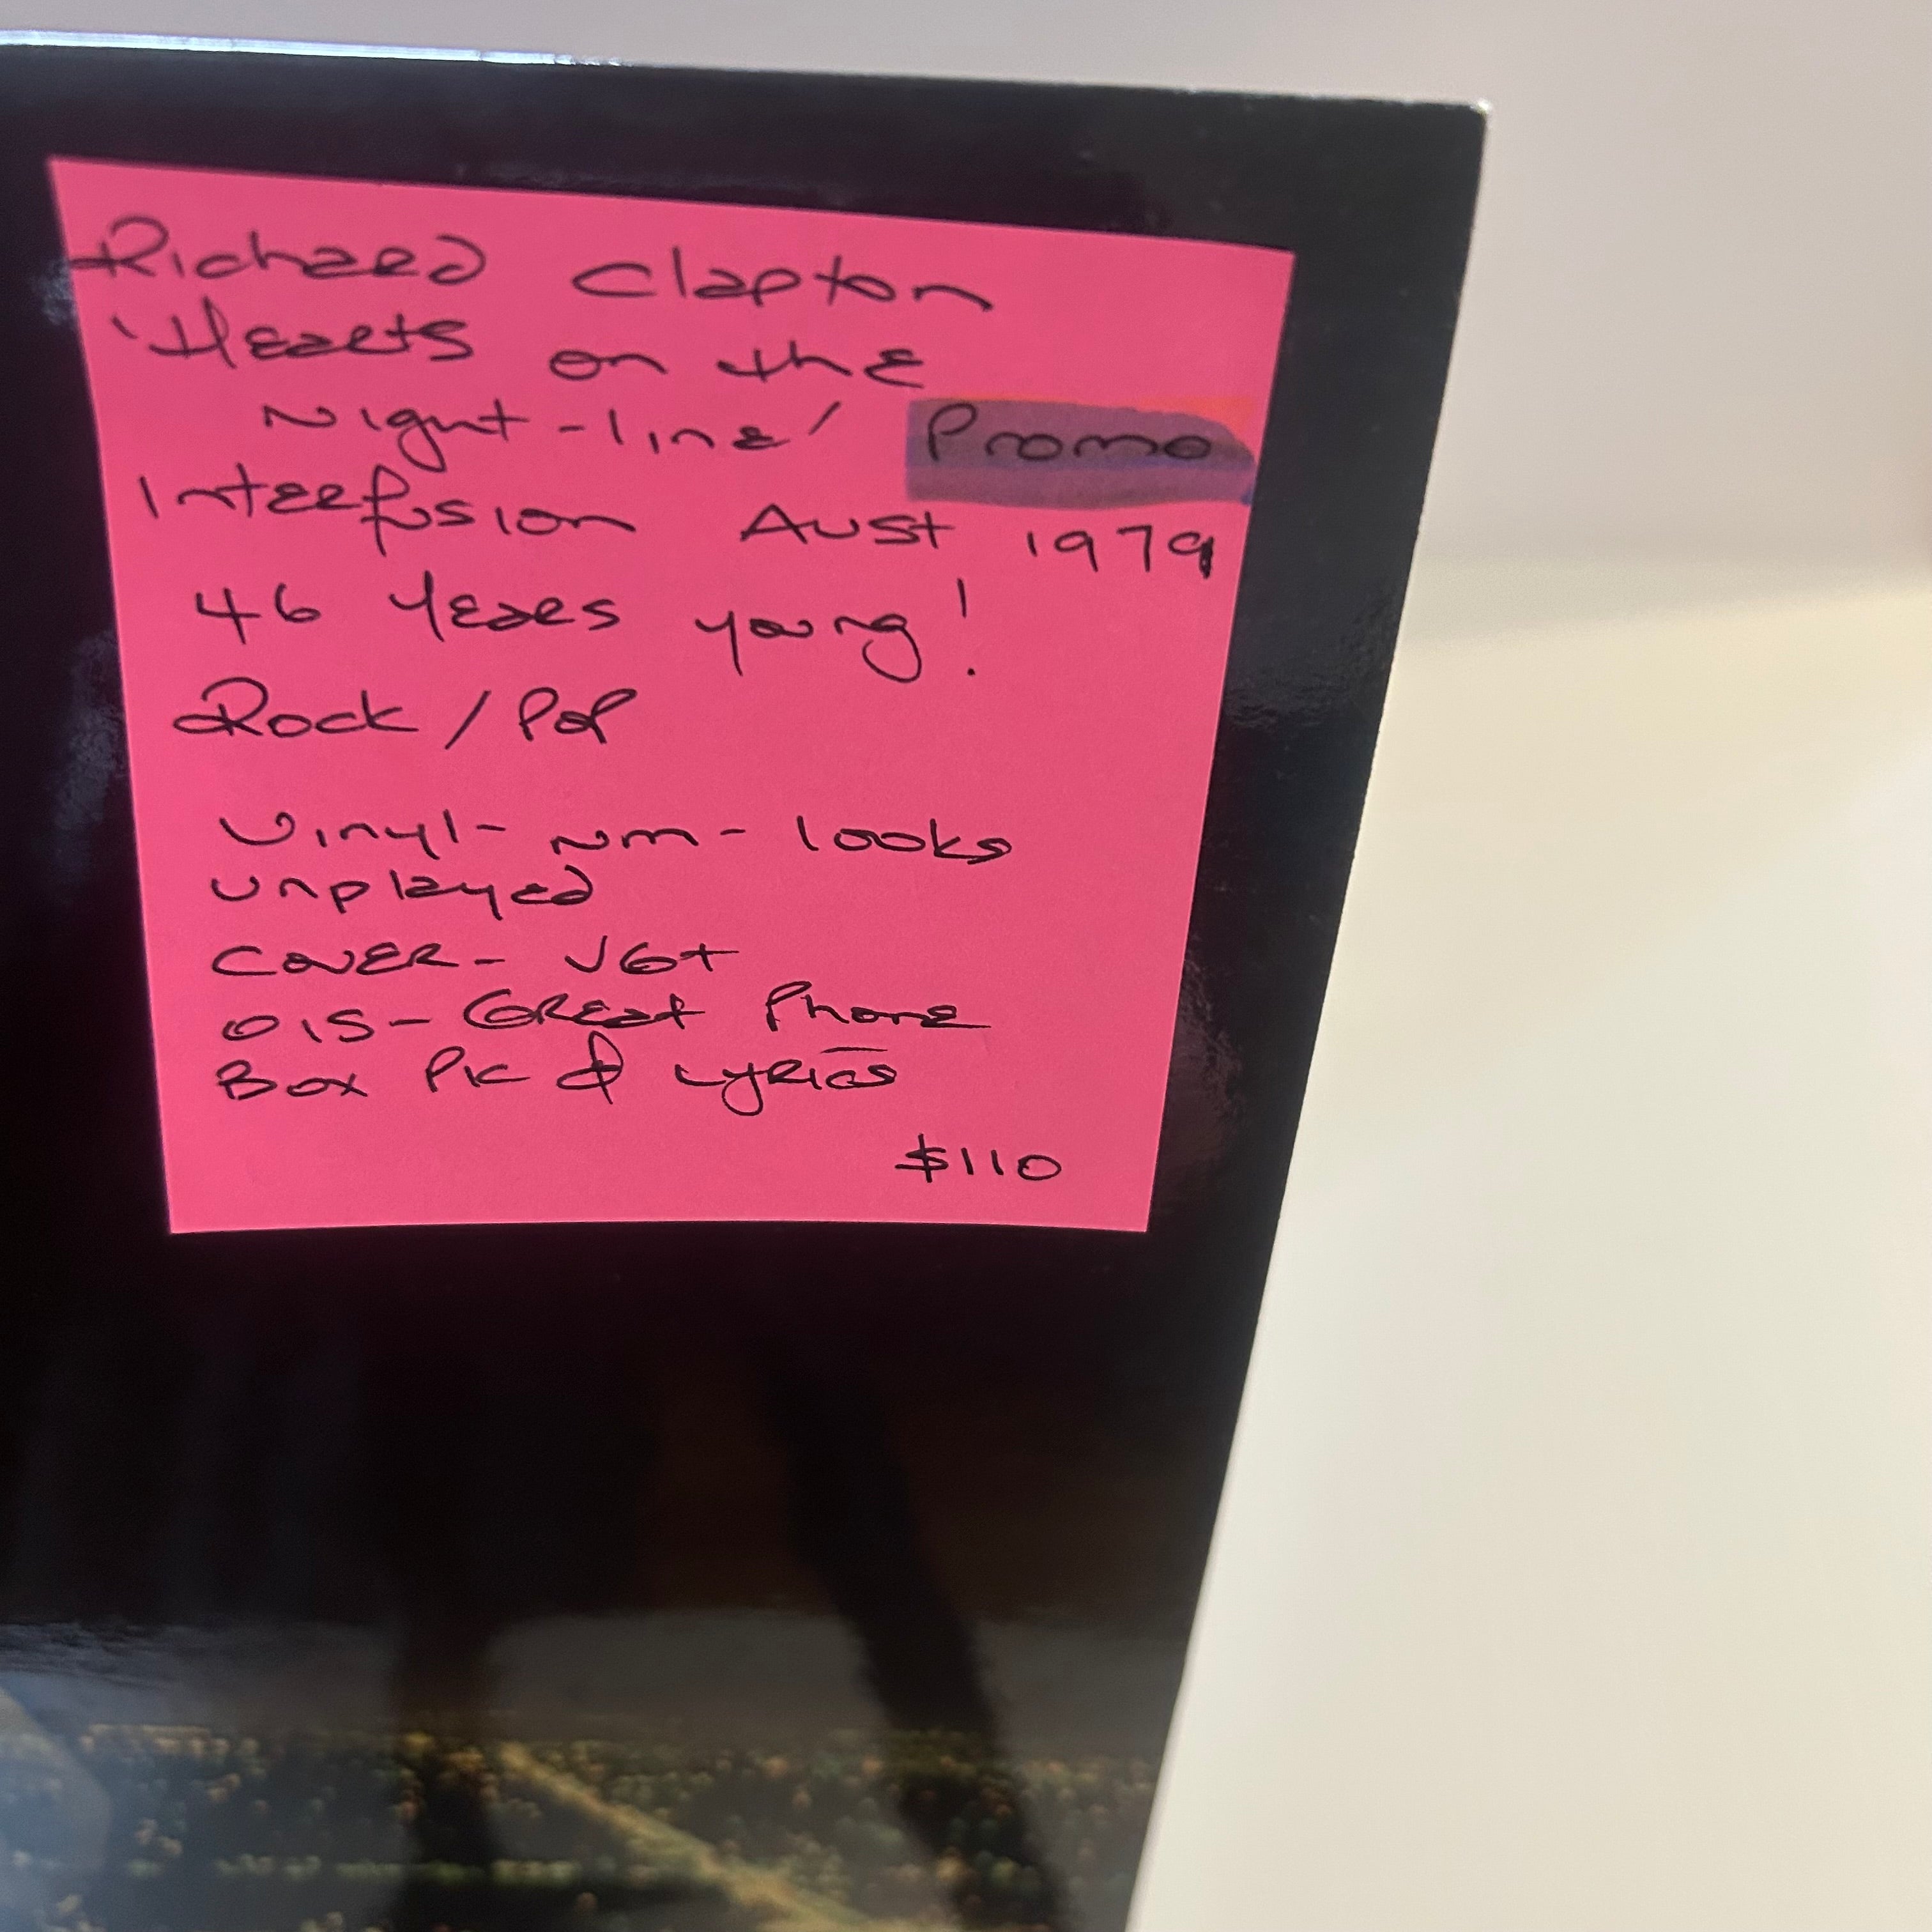 Richard Clapton
'Hearts on the
Night-line' Promo
Interfusion Aust 1979
46 Years young!
Rock / Pop
Vinyl - NM - looks
unplayed
Cover - VG+
OIS - Great Phone
Box Pic & Lyrics
$110